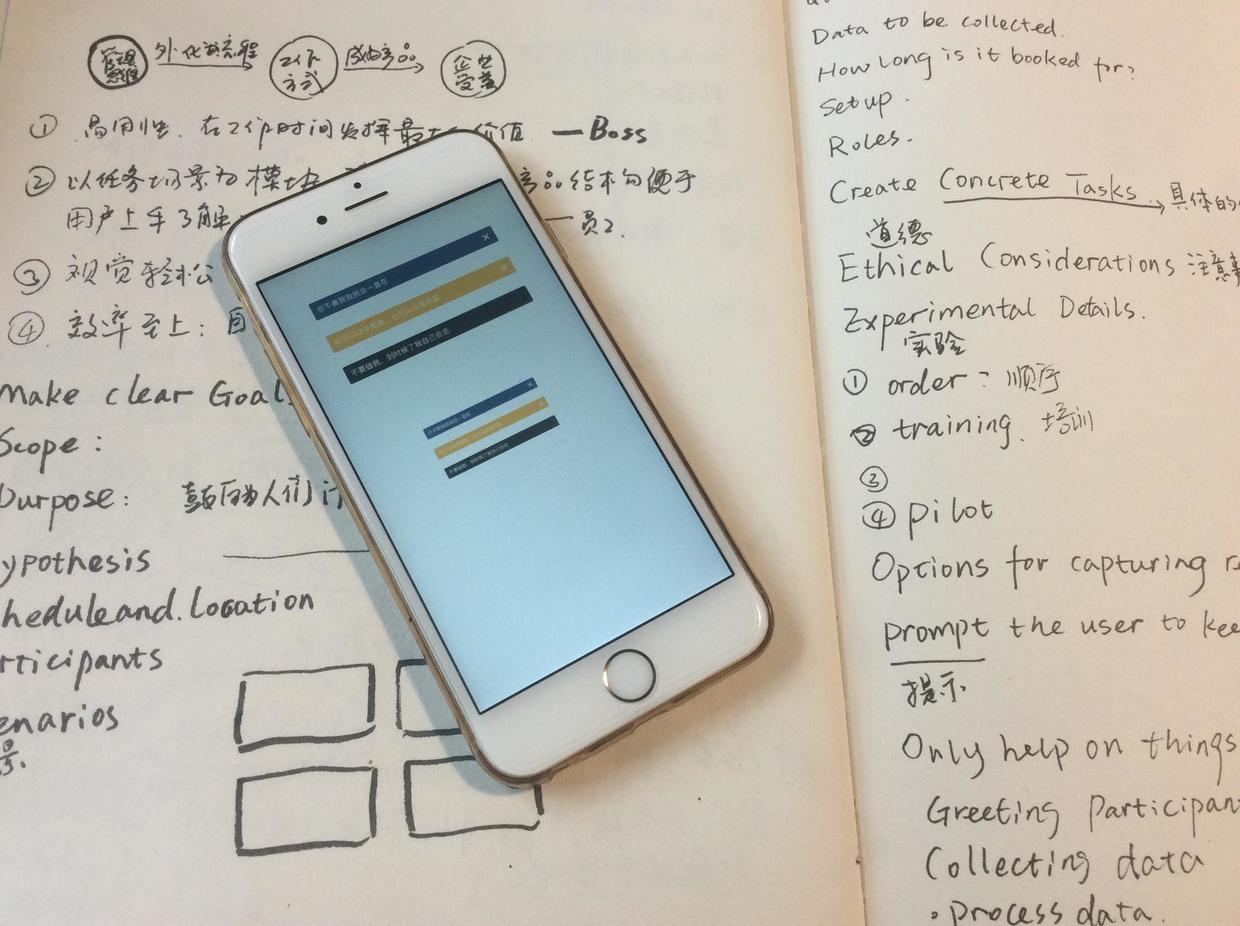 管理思维 外化成流程 工作方式 成的产品 企业受益
① 易用性. 在工作时间发挥最大 价值 — Boss
② 以任务场景为模块 产品结构便于
用户上手了解 一员工.
③ 视觉轻松
④ 效率至上: 目
Make clear Goal.
Scope:
Purpose: 人们
ypothesis
hedule and. Location
rticipants
enarios
景.
你不戳我我就会一直在 ×
×
不要碰我, 到时候了我自己会走
×
×
不要碰我, 到时候了我自己会走
Data to be collected.
How long is it booked for?
Set up.
Roles.
Create Concrete Tasks. 具体的
道德
Ethical Considerations 注意事
Experimental Details.
实验
① order: 顺序
② training. 培训
③
④ pilot
Options for capturing re
prompt the user to kee
提示
Only help on things
Greeting Participan
Collecting data
• process data.